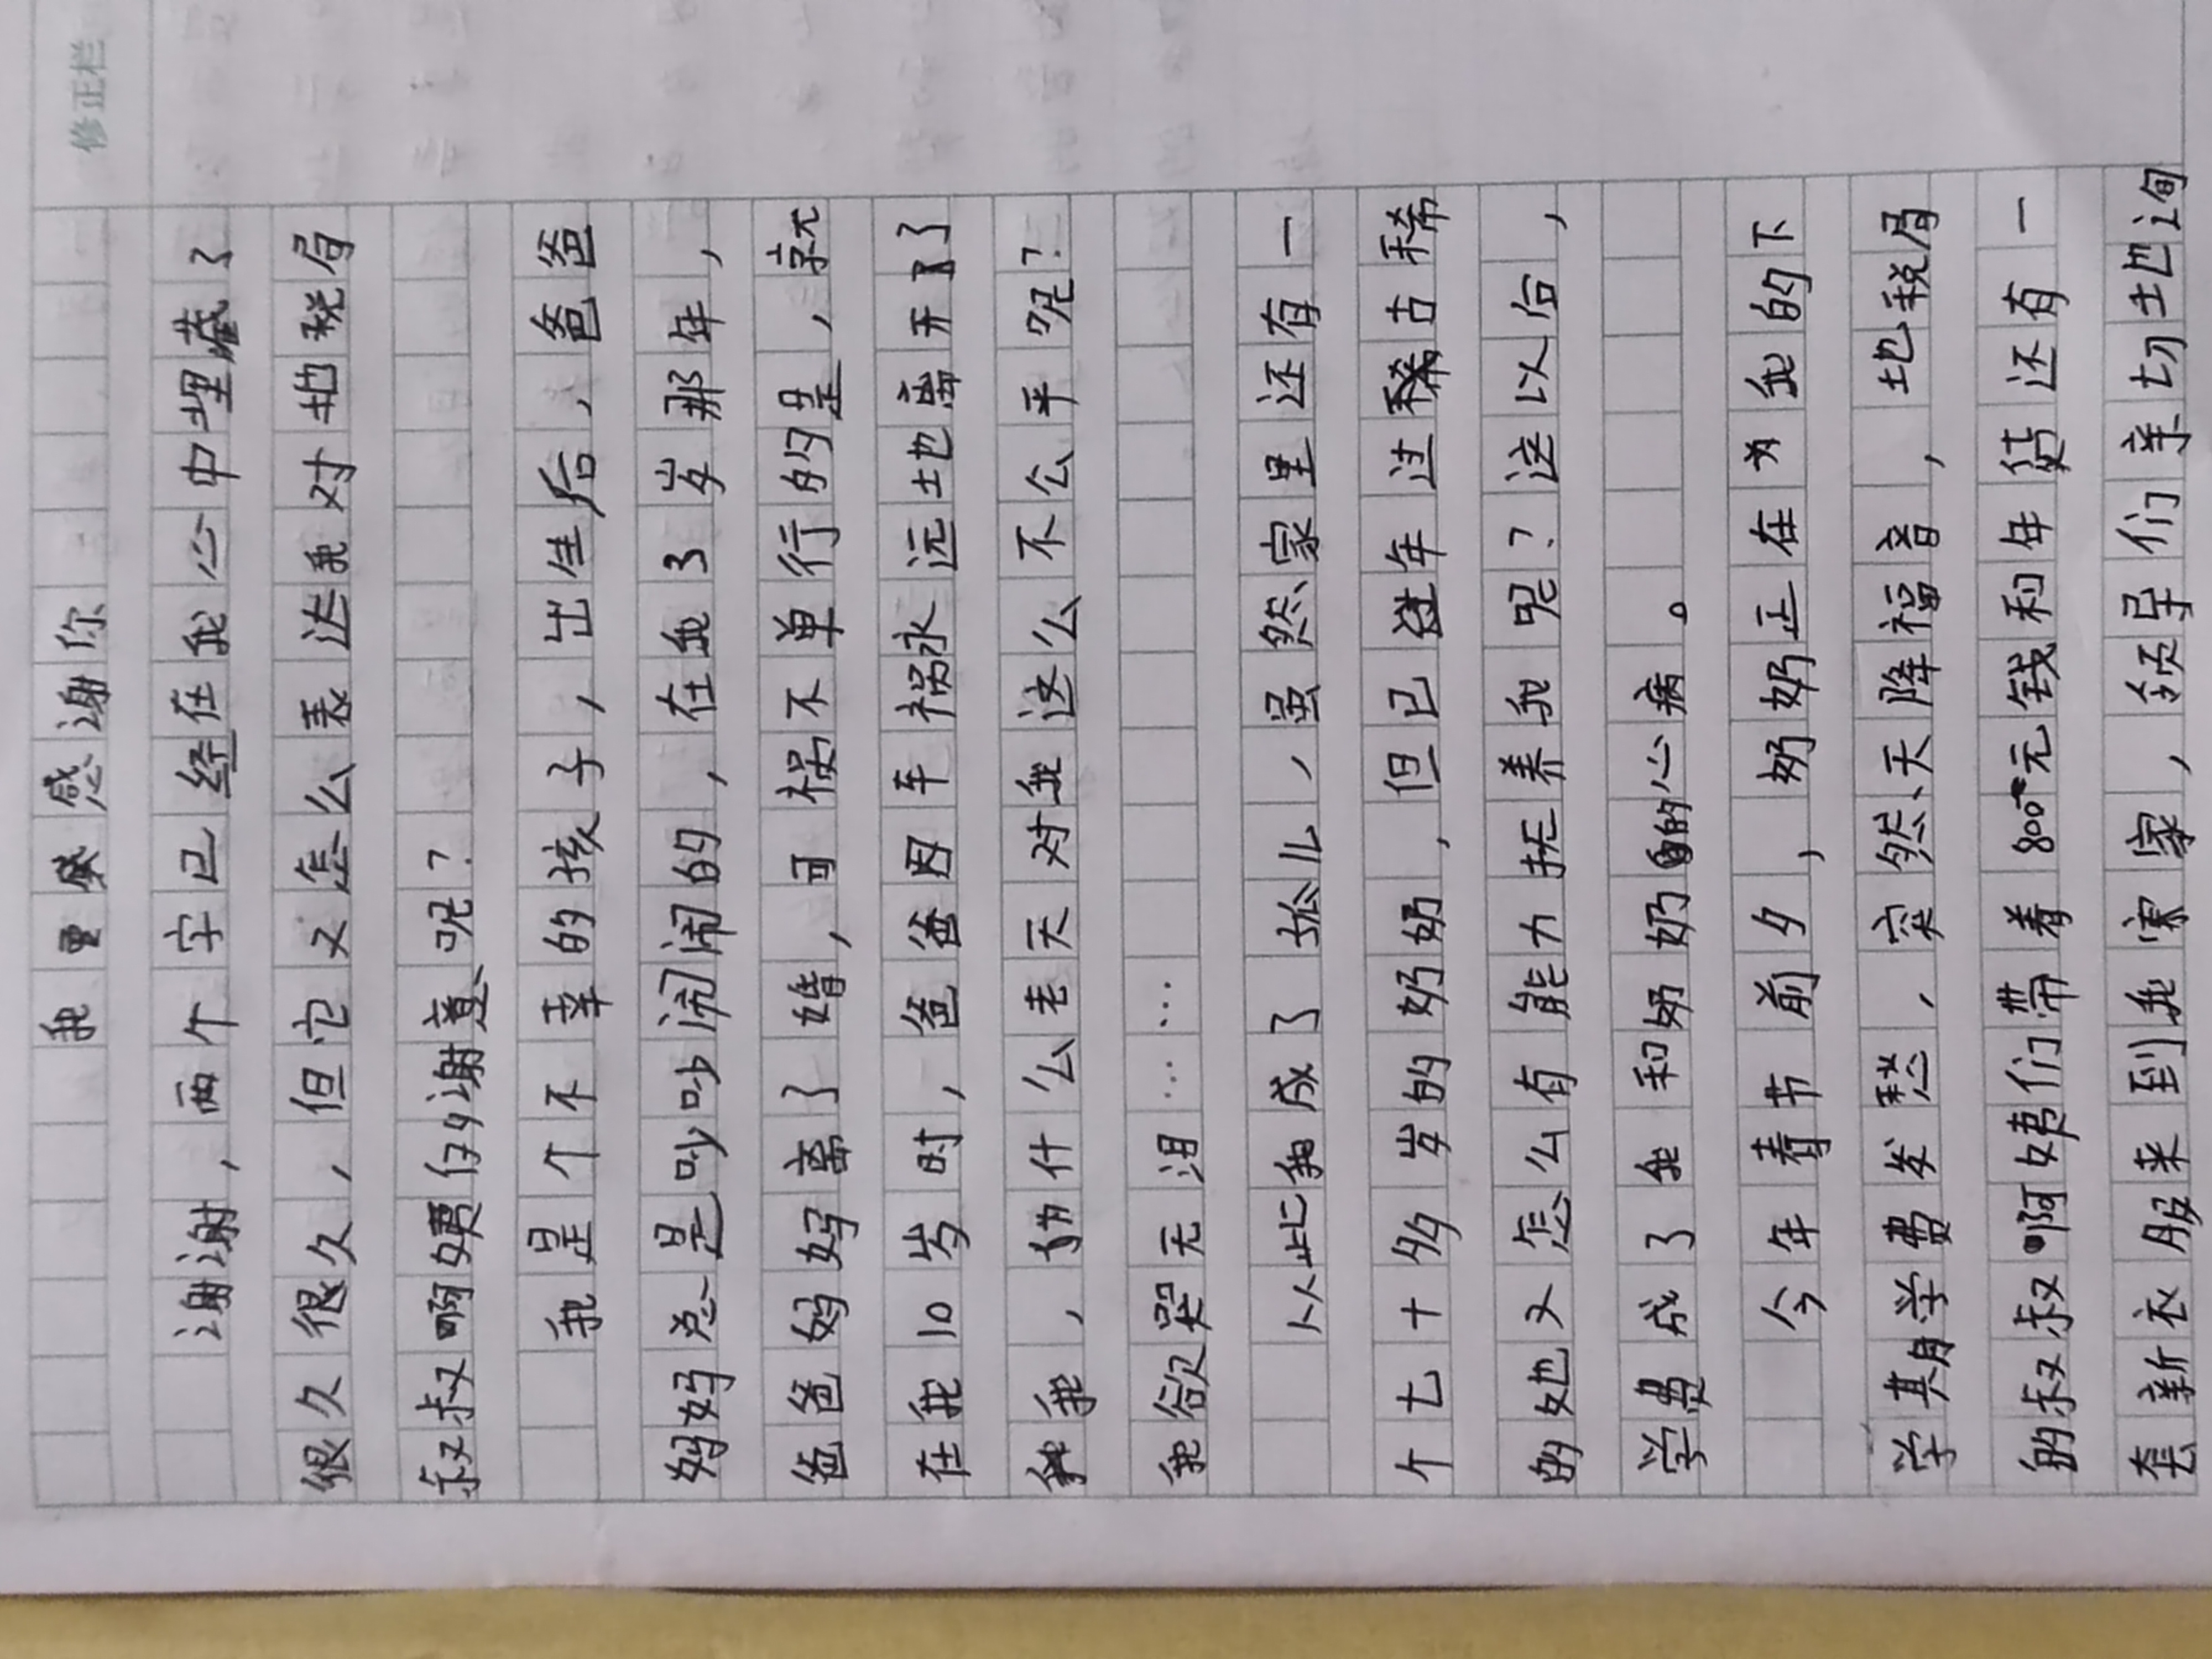 修正栏
我要感谢你
谢谢,两个字已经在我心中埋藏了
很久很久,但它又怎么表达我对地税局
叔叔啊姨们的谢意呢?
我是个不幸的孩子,出生后,爸爸
妈妈总是吵吵闹闹的,在我3岁那年,
爸爸妈妈离了婚,可祸不单行的是,就
在我10岁时,爸爸因车祸永远地离开了
我,为什么老天对我这么不公平呢?
我欲哭无泪……
从此我成了孤儿,虽然家里还有一
个七十多岁的奶奶,但已年过古稀
的她又怎么有能力抚养我呢?这以后,
学费成了我和奶奶的心病。
今年春节前夕,奶奶正在为我的下
学期学费发愁,突然天降福音,地税局
的叔叔啊姨们带着800元钱和年货还有一
套新衣服来到我家,领导们亲切地询